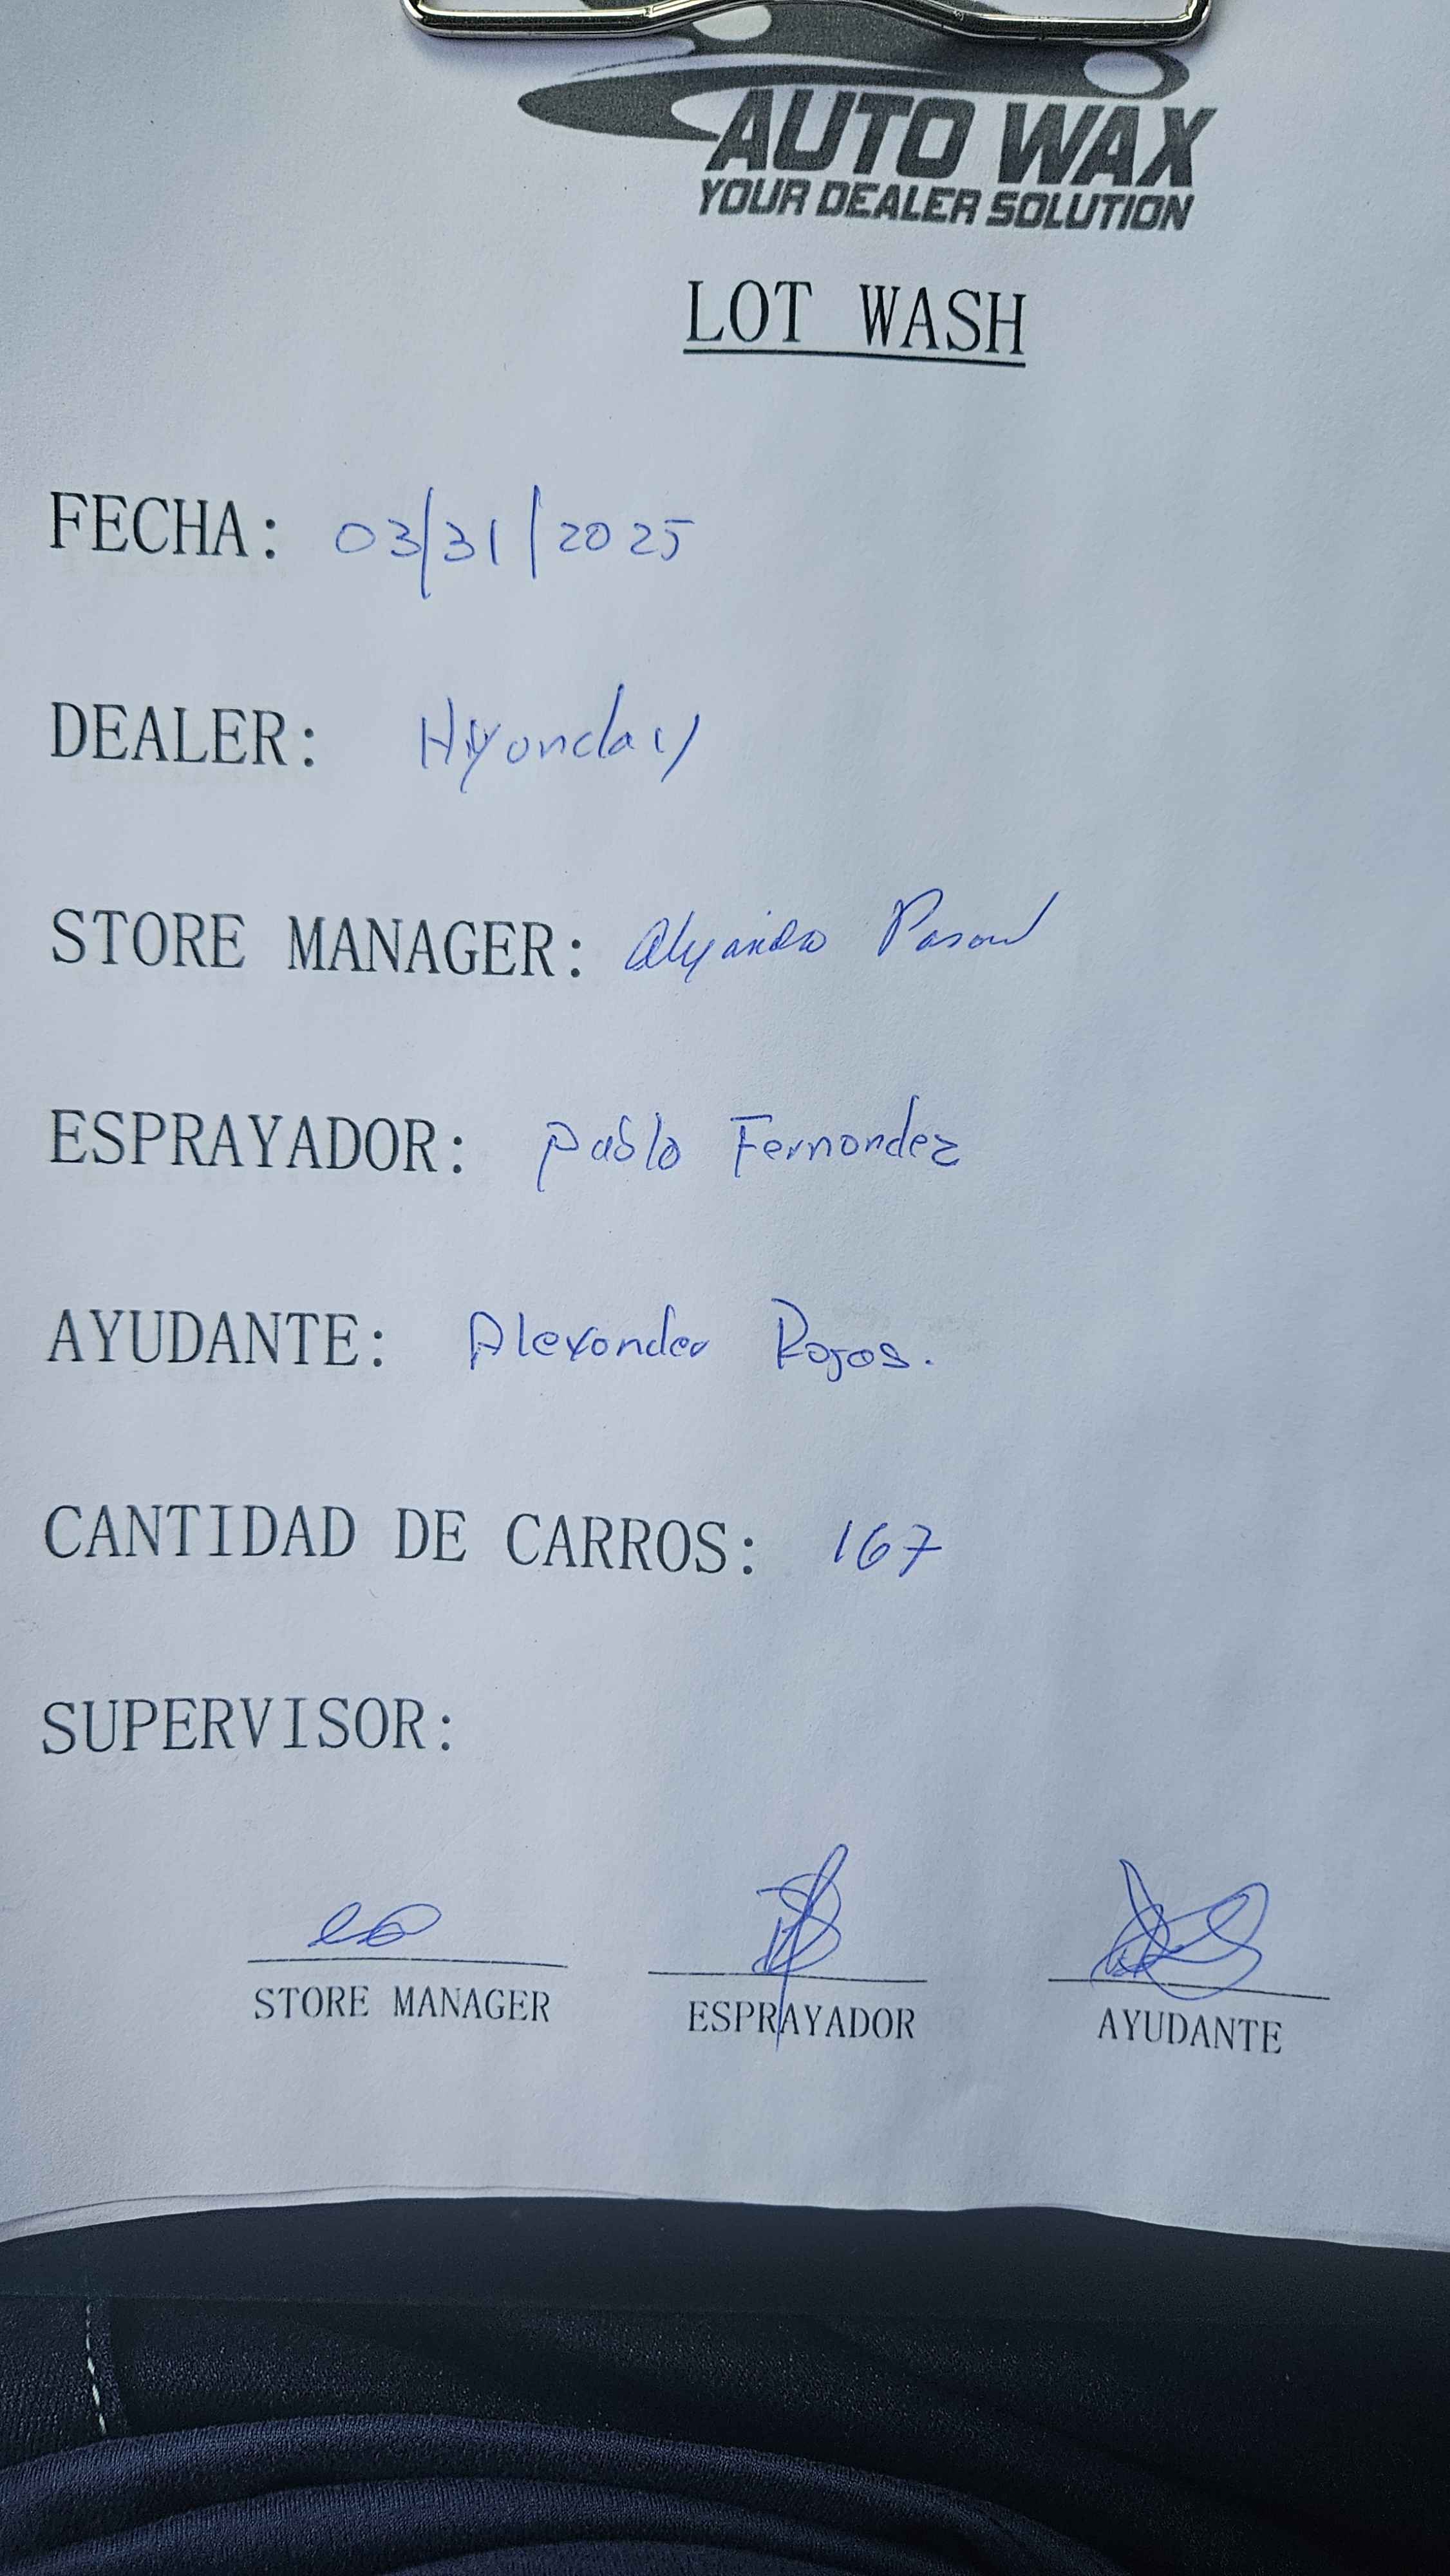 AUTO WAX
YOUR DEALER SOLUTION
LOT WASH
FECHA: 03/31/2025
DEALER: Hyonday
STORE MANAGER:
ESPRAYADOR: Pablo Fernondez
AYUDANTE: Alexonder Rojos.
CANTIDAD DE CARROS: 167
SUPERVISOR:
STORE MANAGER ESPRAYADOR AYUDANTE